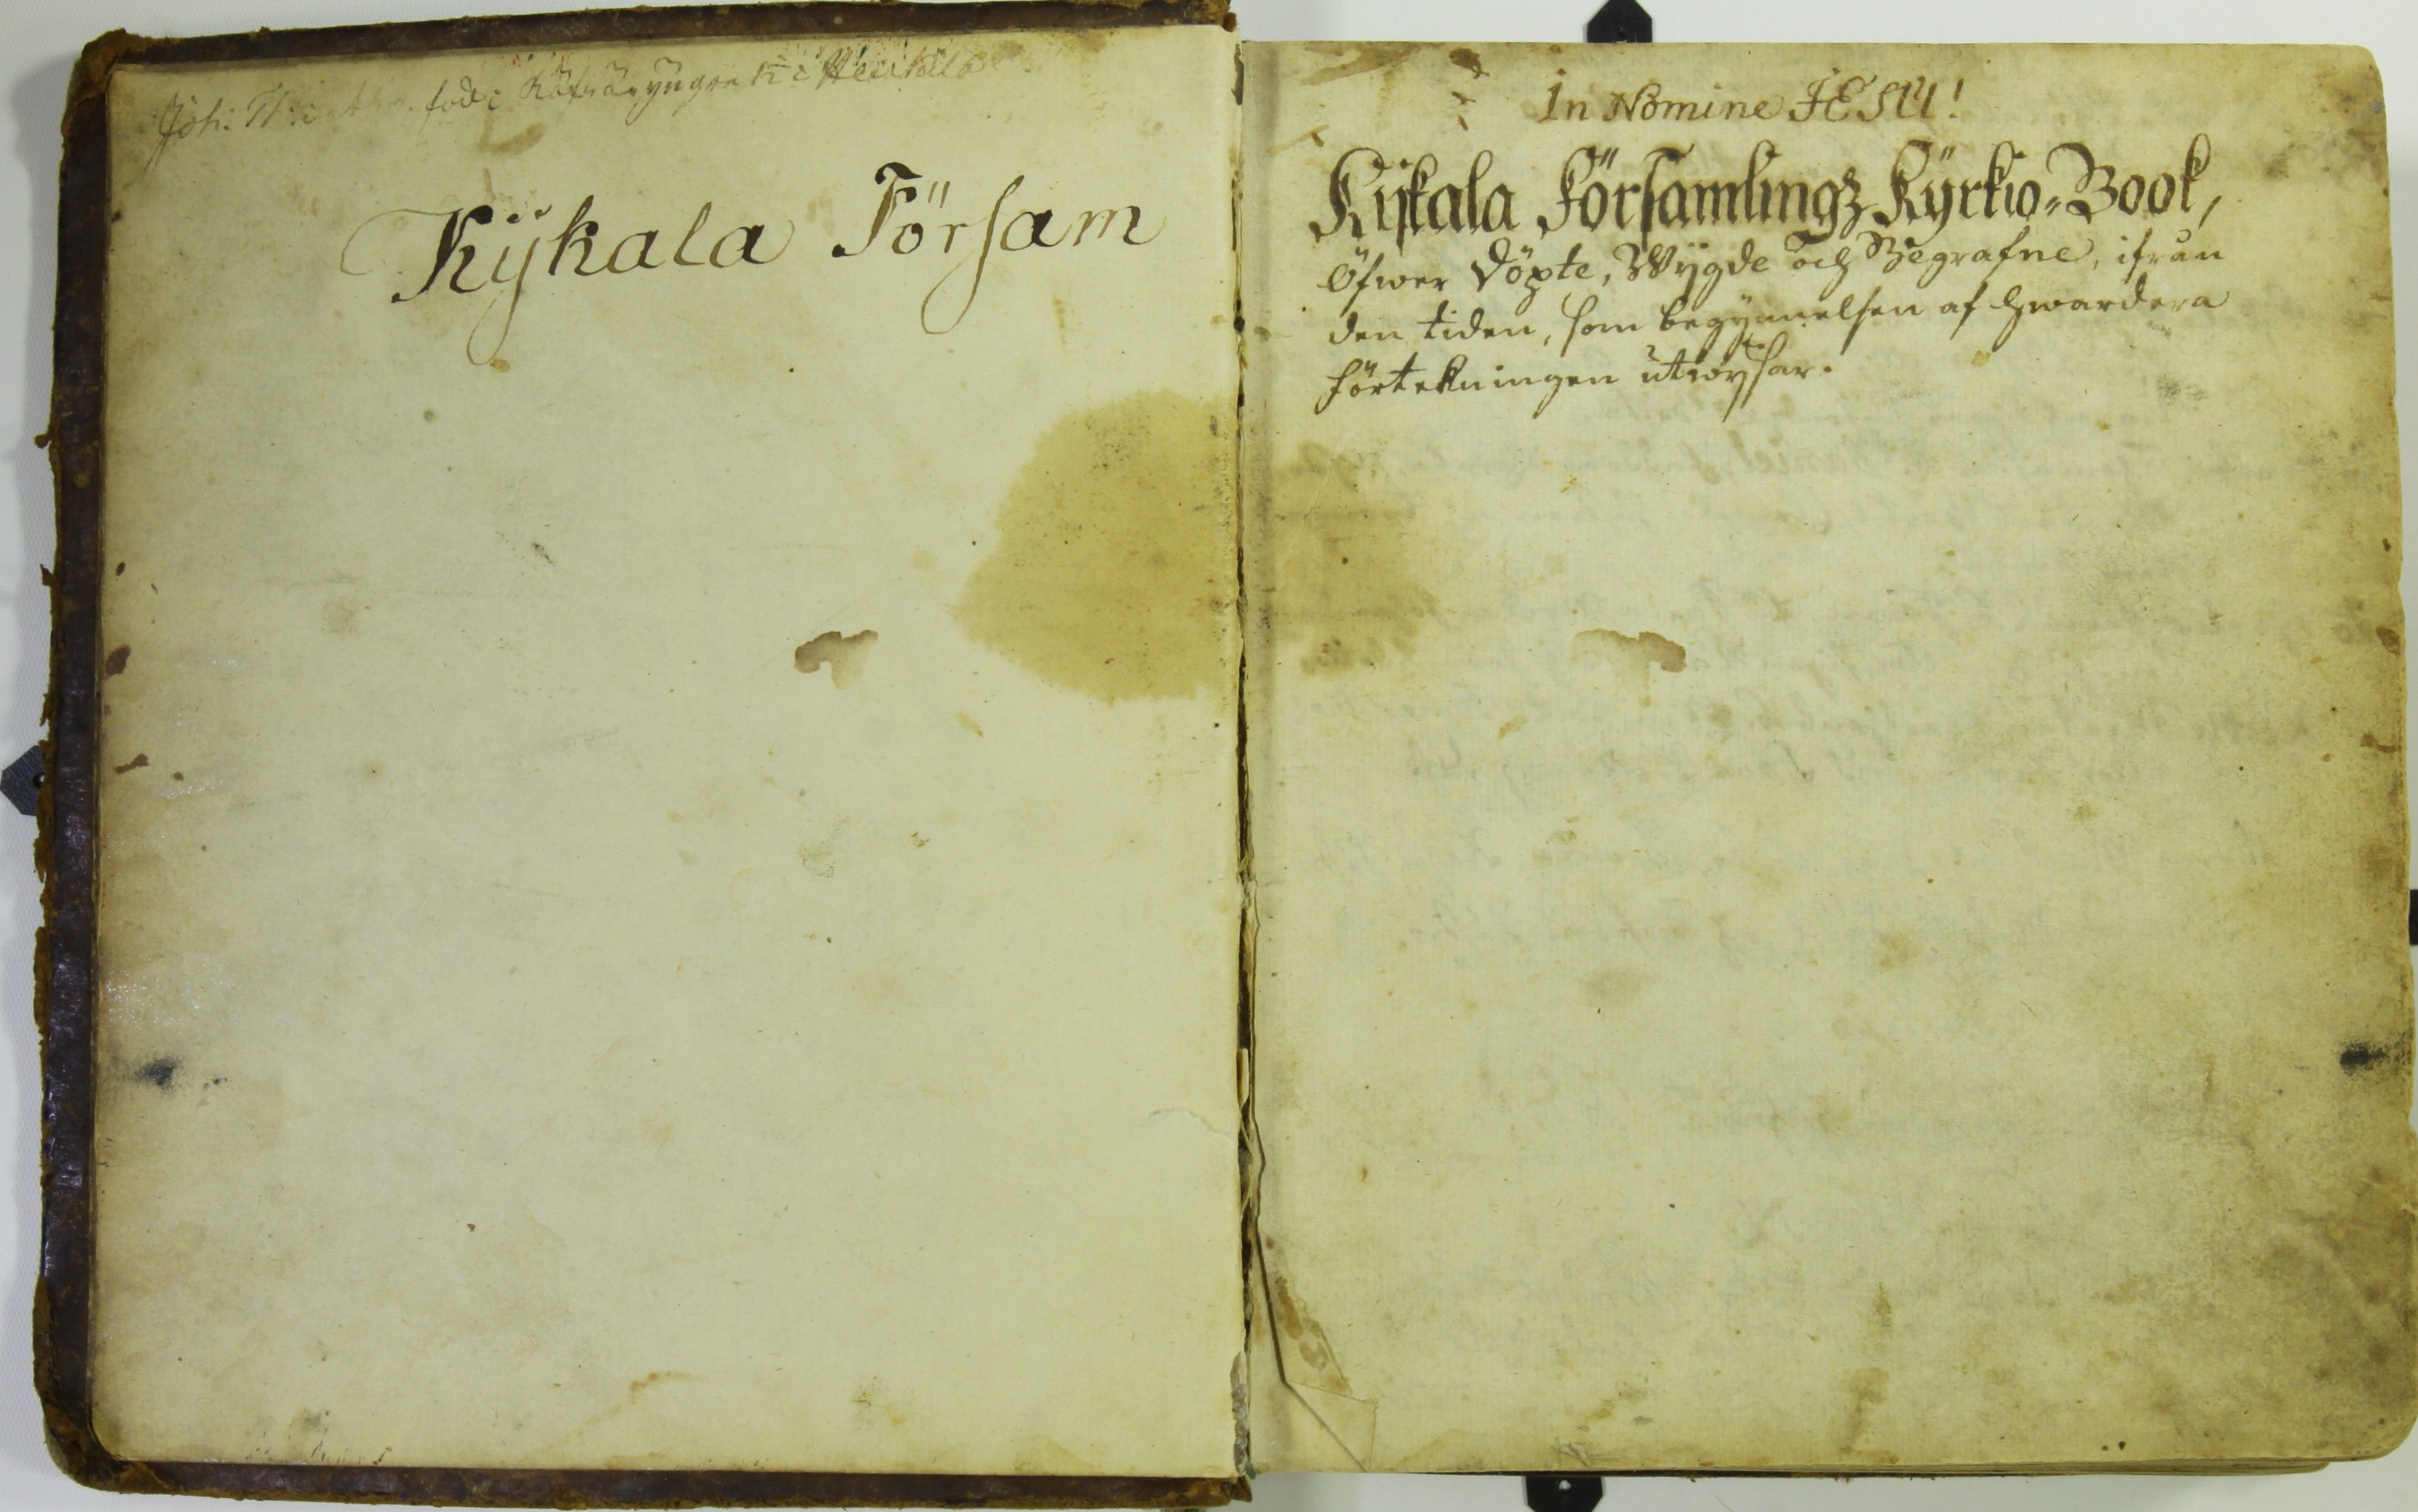 Joh: Th: föd i
Kijkala Försam
In Nomine JESU!
Kijkala Församlingz Kÿrkio-Book,
Öfwer Döpte, Wijgde och Begrafne, ifrån
den tiden, som begÿnnelsen af hwardera
förtekningen utwijsar.